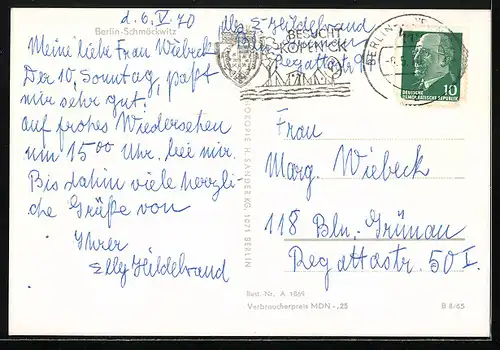 d. 6. V 70
Berlin-Schmöckwitz
Meine liebe Frau Wiebeck
Der 10. Sonntag, paßt
mir sehr gut.
auf frohes Wiedersehen
um 15 00 Uhr. bei mir.
Bis dahin viele herzli-
che Grüße von
Ihrer
Elly Hildebrand
E Hildebrand
Regattastr. 9
BESUCHT
KÖPENICK
BERLIN
10
DEUTSCHE
DEMOKRATISCHE REPUBLIK
H. SANDER KG, 1071 BERLIN
Frau
Marg. Wiebeck
118 Bln.-Grünau
Regattastr. 50 I.
Best. Nr. A 1069
Verbraucherpreis MDN -,25
B 8/65